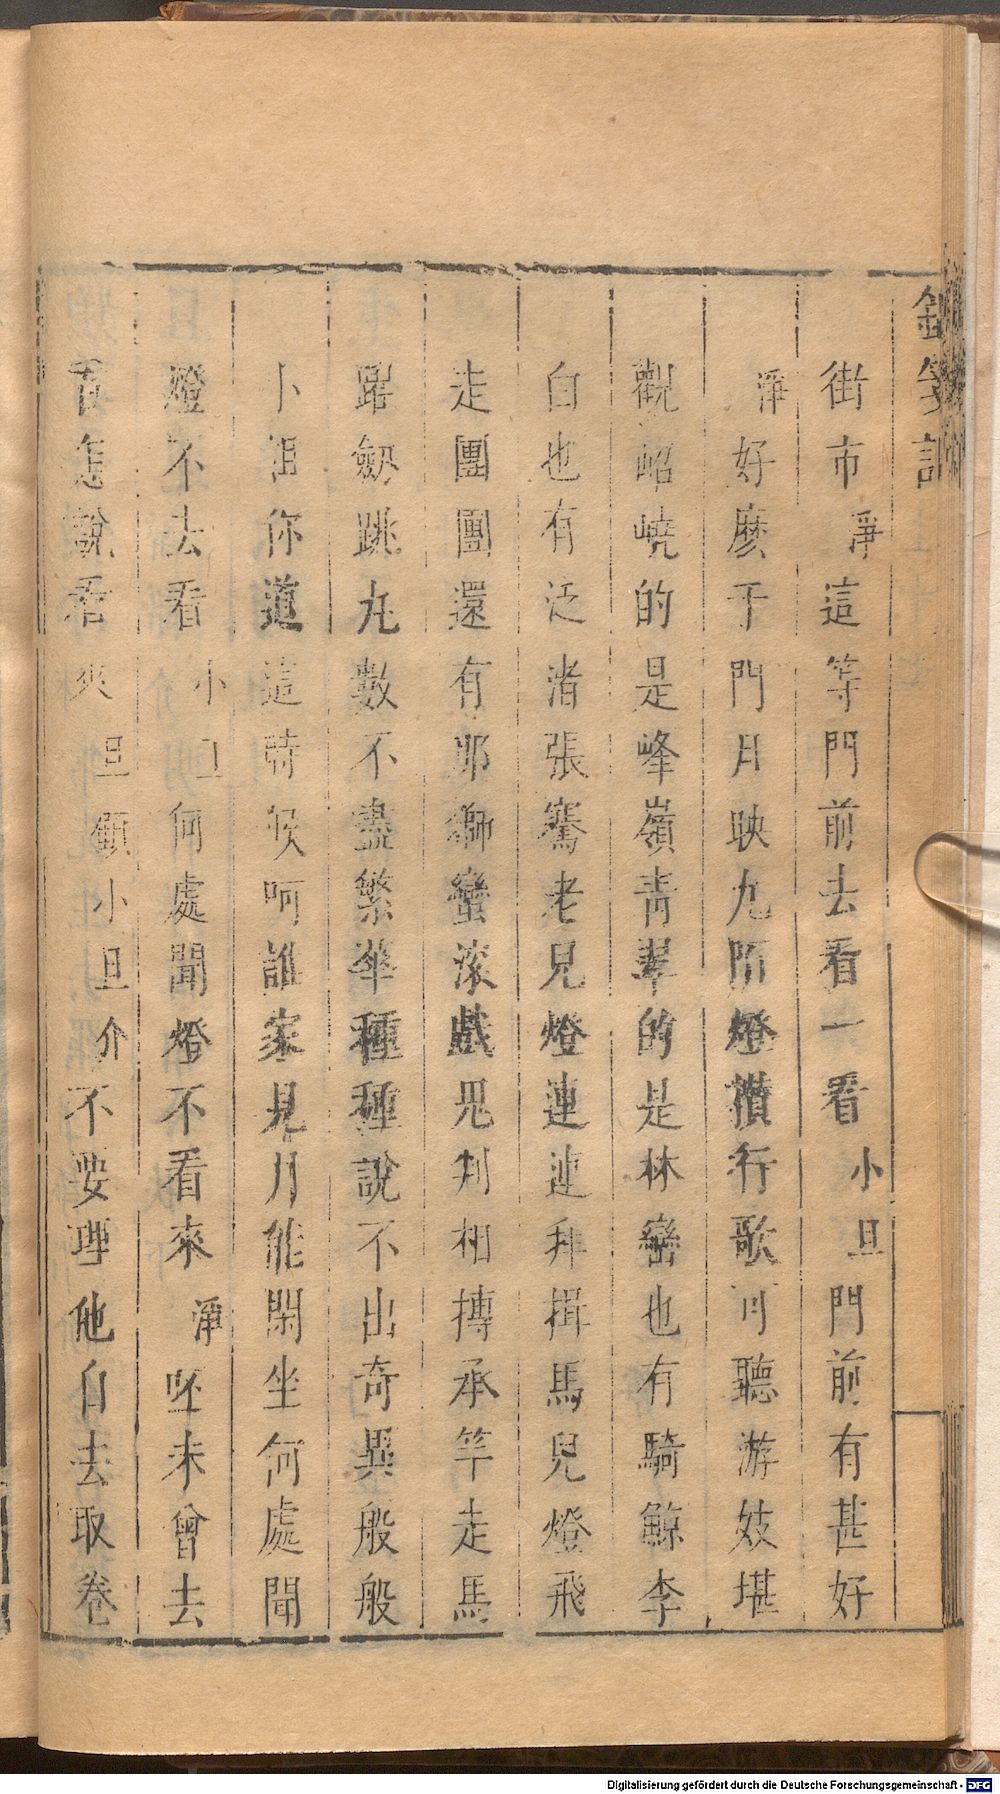 釵記
街市淨這等門前去看一看小旦門前有甚好
淨好麽千門月映九陌燈攢行歌可聽游妓堪
觀岧嶢的是峰嶺青翠的是林巒也有騎鯨李
白也有泛渚張騫老兒燈連連拜揖馬兒燈飛
走團團還有那獅蠻滾戲鬼判相摶承竿走馬
躍劒跳丸數不盡繁華種種說不出奇異般般
小旦你道這時候呵誰家見月能閑坐何處聞
燈不去看小旦何處聞燈不看來淨呸未曾去
看怎說看來旦顧小旦介不要理他自去取卷
Digitalisierung gefördert durch die Deutsche Forschungsgemeinschaft - DFG